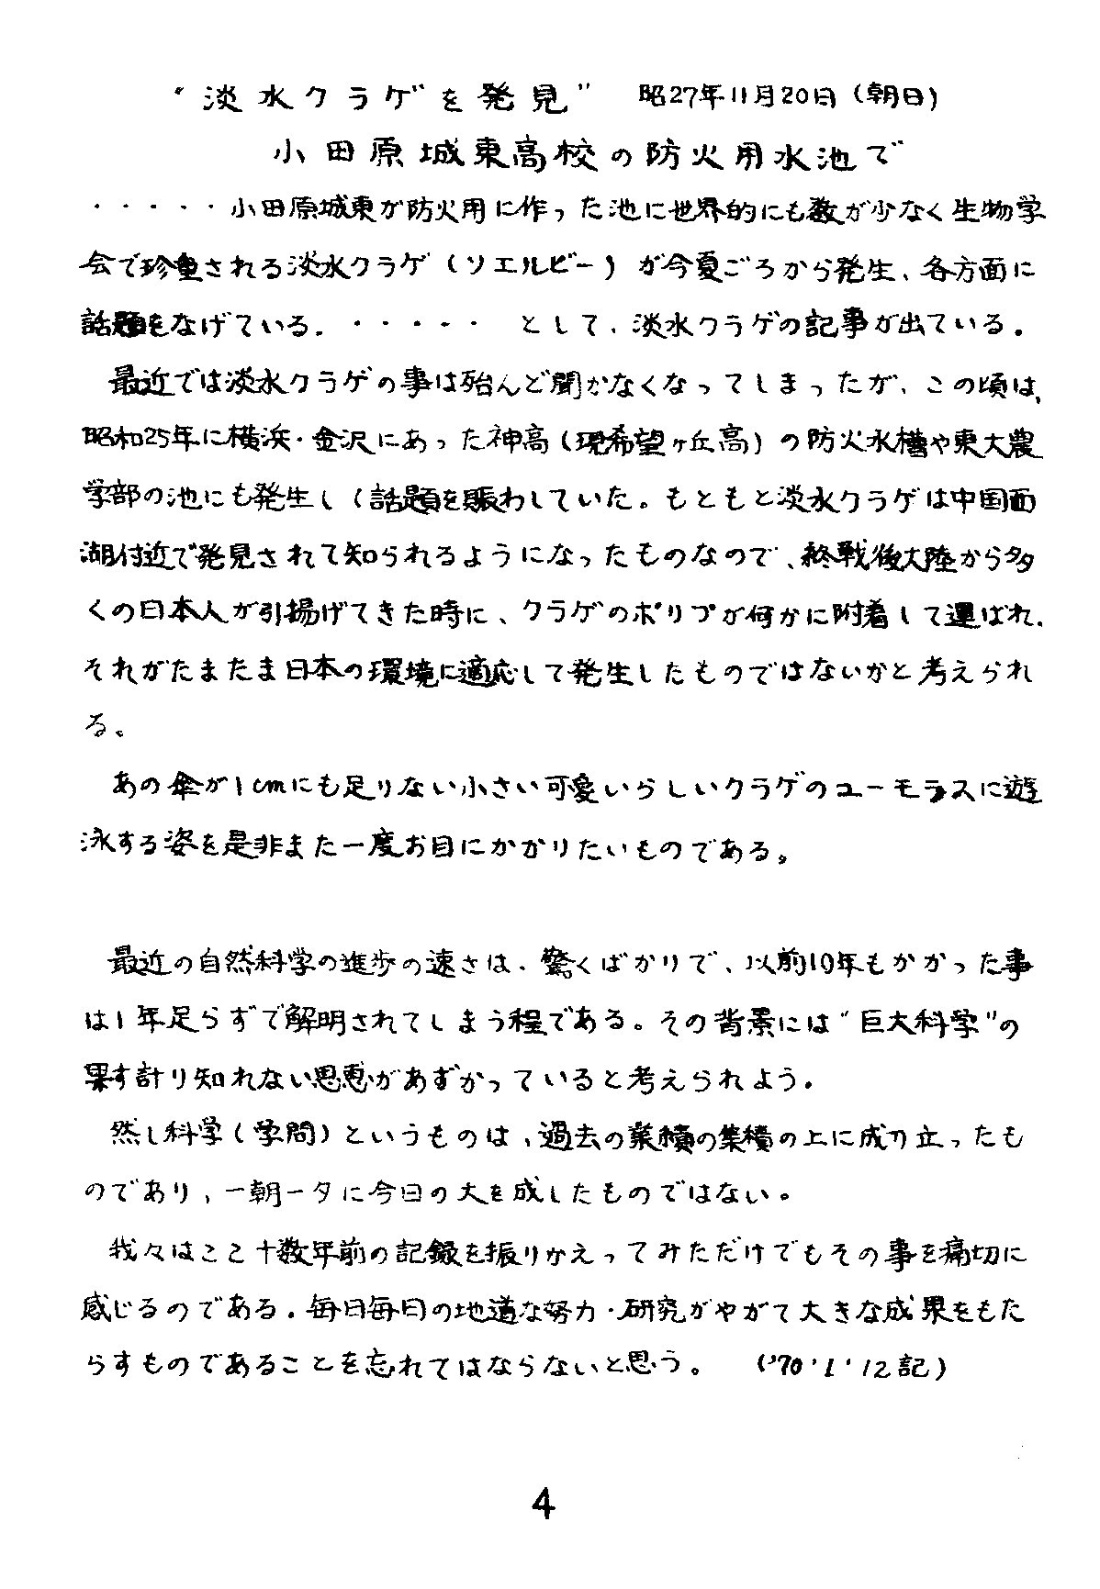 “淡水クラゲを発見” 昭27年11月20日(朝日)
小田原城東高校の防火用水池で
・・・・・小田原城東が防火用に作った池に世界的にも数が少なく生物学
会で珍重される淡水クラゲ(ソエルビー)が今夏ごろから発生、各方面に
話題をなげている.・・・・・ として、淡水クラゲの記事が出ている.
最近では淡水クラゲの事は殆んど聞かなくなってしまったが、この頃は、
昭和25年に横浜・金沢にあった神高(現希望ヶ丘高)の防火水槽や東大農
学部の池にも発生し(話題を賑わしていた。もともと淡水クラゲは中国西
湖付近で発見されて知られるようになったものなので、終戦後大陸から多
くの日本人が引揚げてきた時に、クラゲのポリプが何かに附着して運ばれ.
それがたまたま日本の環境に適応して発生したものではないかと考えられ
る。
あの傘が1cmにも足りない小さい可愛いらしいクラゲのユーモラスに遊
泳する姿を是非また一度お目にかかりたいものである。
最近の自然科学の進歩の速さは、驚くばかりで、以前10年もかかった事
は1年足らずで解明されてしまう程である。その背景には“巨大科学”の
果す計り知れない恩恵があずかっていると考えられよう.
然し科学(学問)というものは、過去の業積の集積の上に成り立ったも
のであり、一朝一夕に今日の大を成したものではない。
我々はここ十数年前の記録を振りかえってみただけでもその事を痛切に
感じるのである.毎日毎日の地道な努力・研究がやがて大きな成果をもた
らすものであることを忘れてはならないと思う。 ('70'1'12記)
4